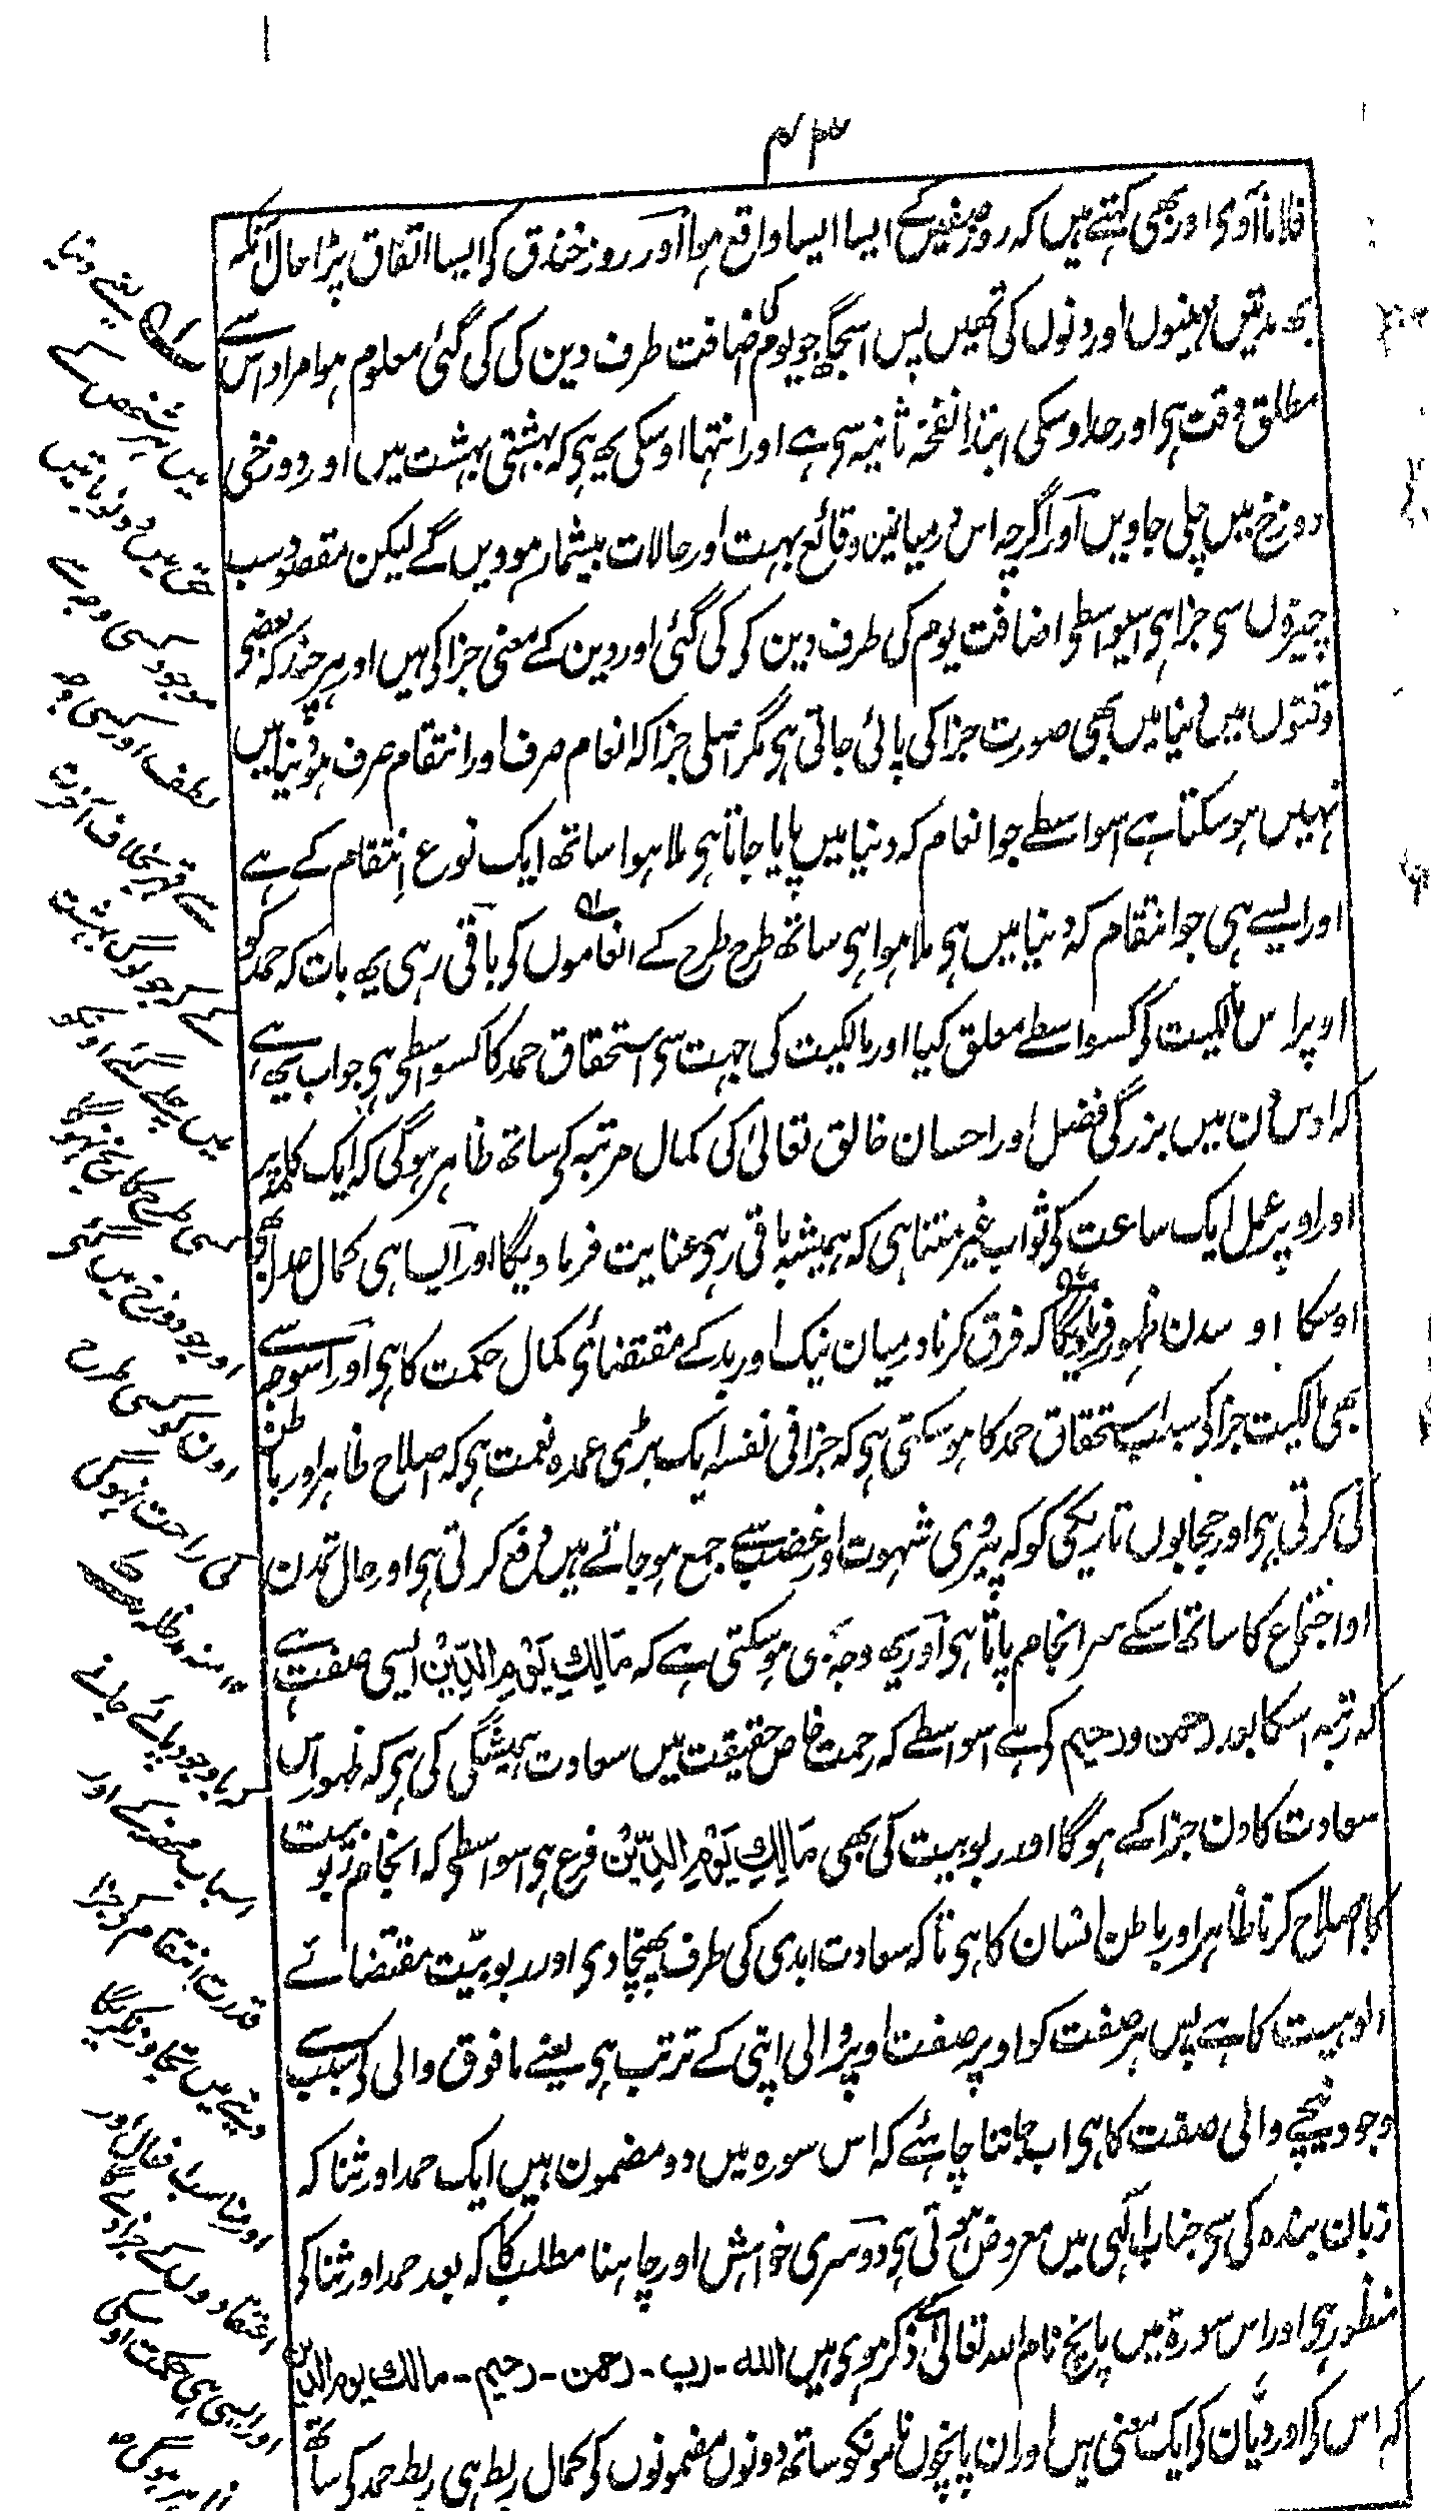 ۴۳
فلانا آوی اور بھی کہتے ہیں کہ روز صفین کے ایسا ایسا واقع ہوا اور روز خندق کو ایسا اتفاق پڑا حال آنکہ
یہ مدتیں مہینوں اور دنوں کی تھیں پس اسجگہ جو یوم کی اضافت طرف دین کی کی گئی معلوم ہوا مراد اس سے
مطلق وقت ہی اور حد اوسکی ابتدا نفخہ ثانیہ سی ہے اور انتہا اوسکی یہ ہی کہ بہشتی بہشت میں اور دوزخی
دوزخ میں چلی جاویں اور اگرچہ اس درمیان میں وقائع بہت اور حالات بیشمار ہوویں گے لیکن مقصود سب
چیزوں سی جزا ہی اسیواسطی اضافت یوم کی طرف دین کر کی گئی اور دین کے معنی جزا کی ہیں اور ہرچند کہ بعضی
وقتوں میں دنیا میں بھی صورت جزا کی پائی جاتی ہی مگر اصلی جزا کہ انعام صرف اور انتقام صرف ہو دنیا میں
نہیں ہو سکتا ہے اسواسطے جو انعام کہ دنیا میں پایا جاتا ہی ملا ہوا ساتھ ایک نوع انتقام کے ہے
اور ایسے ہی جو انتقام کہ دنیا میں ہی ملا ہوا ہی ساتھ طرح طرح کے انعاموں کو باقی رہی یہ بات کہ حمد کو
اوپر اس مالکیت کو کسواسطے معلق کیا اور مالکیت کی جہت سی استحقاق حمد کا کسواسطی ہی جواب یہ ہے
کہ اوس دن میں بزرگی فضل اور احسان خالق تعالیٰ کی کمال مرتبہ کی ساتھ ظاہر ہوگی کہ ایک کلمہ پر
اور اوپر عمل ایک ساعت کو ثواب غیر متناہی کہ ہمیشہ باقی رہی عنایت فرماویگا اور ایسا ہی کمال عدل بھی
اوسکا اوسدن ظہور فرماویگا کہ فرق کرنا درمیان نیک اور بد کے مقتضائی کمال حکمت کا ہی اور اسوجہ سے
بھی مالکیت جزا کو سبب استحقاق حمد کا ہو سکتی ہی کہ جزا فی نفسہ ایک بڑی عمدہ نعمت ہی کہ اصلاح ظاہر اور باطن
کی کرتی ہی اور حجابوں تاریکی کو کہ پیروی شہوت اور غضب سے جمع ہو جاتے ہیں دفع کرتی ہی اور حال تمدن
اور اجتماع کا ساتھ اسکے سرانجام پاتا ہی اور یہ وجہ بھی ہو سکتی ہے کہ مَالِكِ يَوْمِ الدِّيْنِ ایسی صفت ہے
کہ رتبہ اسکا بعد رحمن و رحیم کو ہے اسواسطے کہ رحمت خاص حقیقت میں سعادت ہمیشگی کی ہی کہ ظہور اس
سعادت کا دن جزا کے ہوگا اور ربوبیت کی بھی مَالِكِ يَوْمِ الدِّيْنِ فرع ہی اسواسطی کہ انجام ربوبیت
کا اصلاح کرنا ظاہر اور باطن انسان کا ہی تا کہ سعادت ابدی کی طرف پہنچاوی اور ربوبیت مقتضائے
الوہیت کا ہے پس ہر صفت کو اوپر صفت اوپر والی اپنی کے ترتب ہی یعنے مافوق والی کو سبب سے
وجود نیچے والی صفت کا ہی اب جاننا چاہئے کہ اس سورہ میں دو مضمون ہیں ایک حمد اور ثنا کہ
زبان بندہ کی سی جناب الٰہی میں معروض ہوتی ہی دوسری خواہش اور چاہنا مطلب کا کہ بعد حمد اور ثنا کی
منظور ہی اور اس سورۃ میں پانچ نام اللہ تعالیٰ کے ذکر ہوی ہیں الله - رب - رحمن - رحیم - مالك یوم الدین
کہ اس کی اور دیّان کی ایک معنی ہیں اور ان پانچوں نامونکو ساتھ دونوں مضمونوں کو کمال ربط ہی ربط حمد کی ساتھ
یعنے دنیا
میں ہر شخص کے
حق میں دونو باتیں
موجود کسی وجہ سے
لطف اور کسی وجہ
سے قہر بخلاف آخرت
کے کہ جو لوگ بہشت
میں چلے گئے اونکو
کسی طرح کا رنج نہوگا
اور جو دوزخ میں گئے
اون کو کسی طرح
کی راحت نہوگی
باوجود پائے جانے
اسباب مغفرت کے اور
قدرت انتقام کو جزا
دینے میں تجاوز نکریگا
اور مناسب افعال اور
اعتقادوں کے جزا دے گا
اور ایسی ہی حکمت اوسکی
ظاہر ہوگی